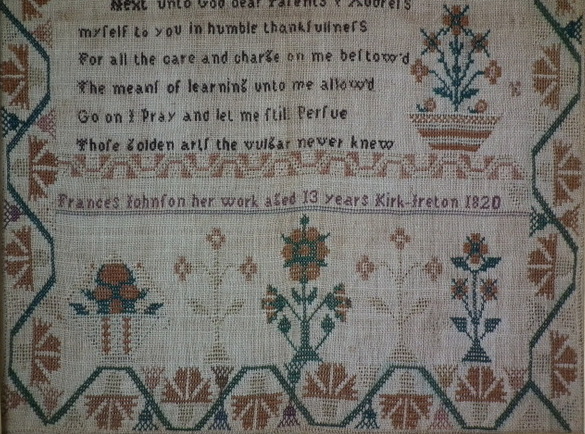 Next unto God dear Parents I Addreſs
myſelf to you in humble thankfullneſs
For all the care and charge on me beſtow'd
The meanſ of learning unto me allow'd
Go on I Pray and let me ſtill Perſue
Thoſe Golden artſ the vulgar never knew
Frances Iohnſon her work aged 13 years Kirk-Ireton 1820